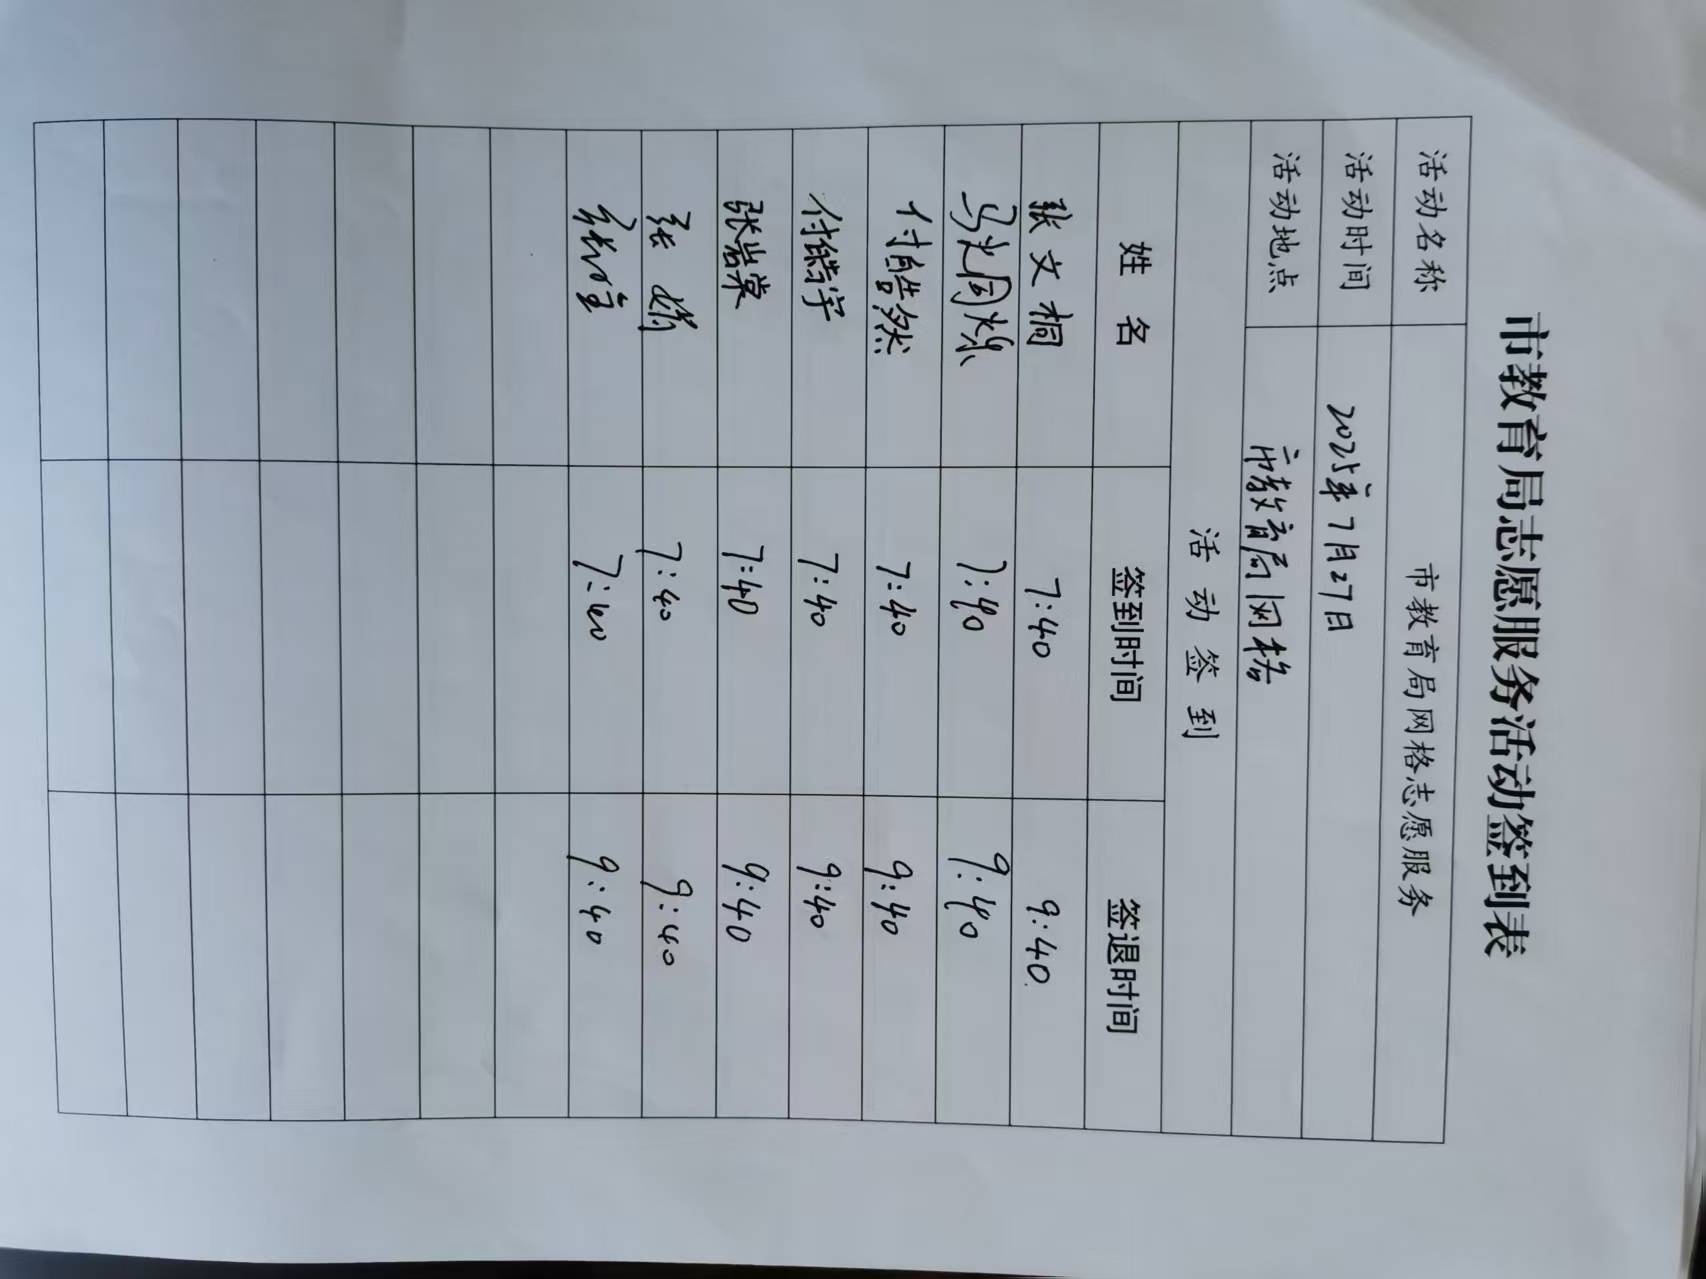 市教育局志愿服务活动签到表
活动名称 市教育局网格志愿服务
活动时间 2025年7月27日
活动地点 市教育局网格
活动签到
姓名 签到时间 签退时间
张文桐 7:40 9:40
7:40 9:40
付皓然 7:40 9:40
付 宇 7:40 9:40
张岩棠 7:40 9:40
张娟 7:40 9:40
7:40 9:40